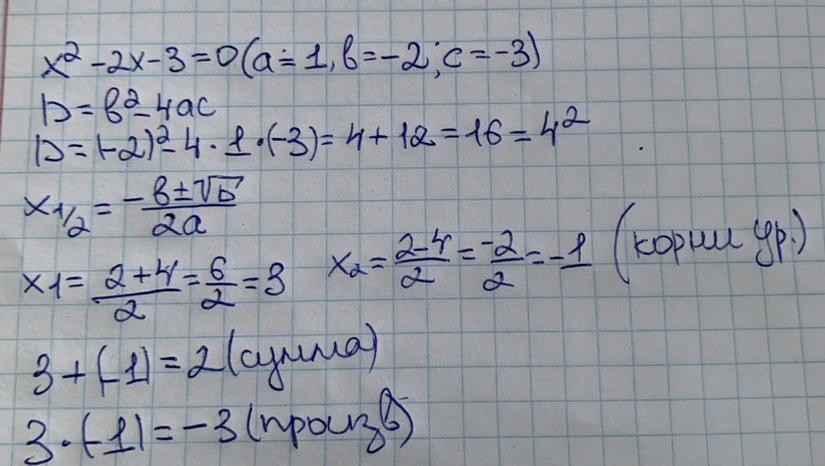 x² - 2x - 3 = 0 (a = 1, в = -2; c = -3)
D = в² - 4ac
D = (-2)² - 4 · 1 · (-3) = 4 + 12 = 16 = 4²
x1/2 = (-в ± √D)/2a
x1 = (2+4)/2 = 6/2 = 3 x2 = (2-4)/2 = -2/2 = -1 (корни ур.)
3 + (-1) = 2 (сумма)
3 · (-1) = -3 (произв)